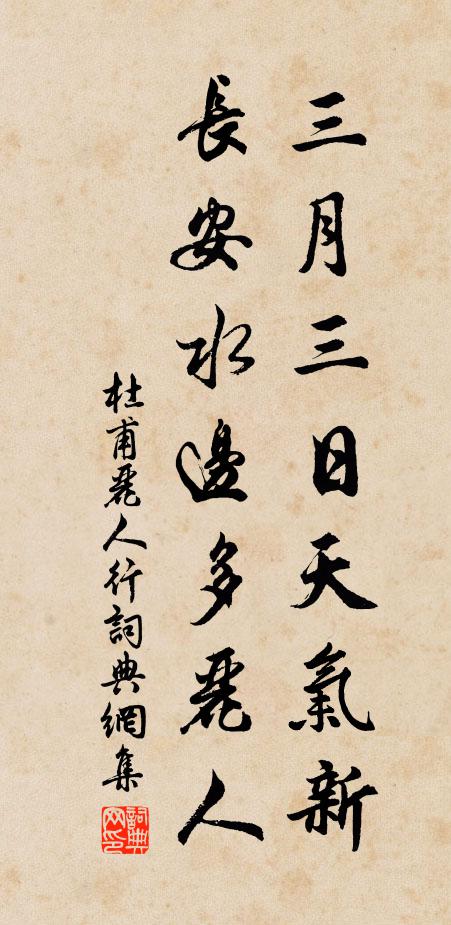 三月三日天氣新
長安水邊多麗人
杜甫麗人行詞典網集
詞典網印